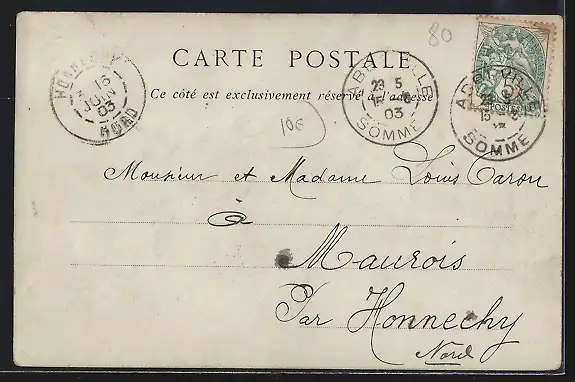 80
CARTE POSTALE
Ce côté est exclusivement réservé à l'adresse
16
JUIN
03
NORD
ABBEVILLE
23 5
03
SOMME
ABBEVILLE
SOMME
106
Monsieur et Madame Louis Caron
à
Maurois
Par Honnechy
Nord